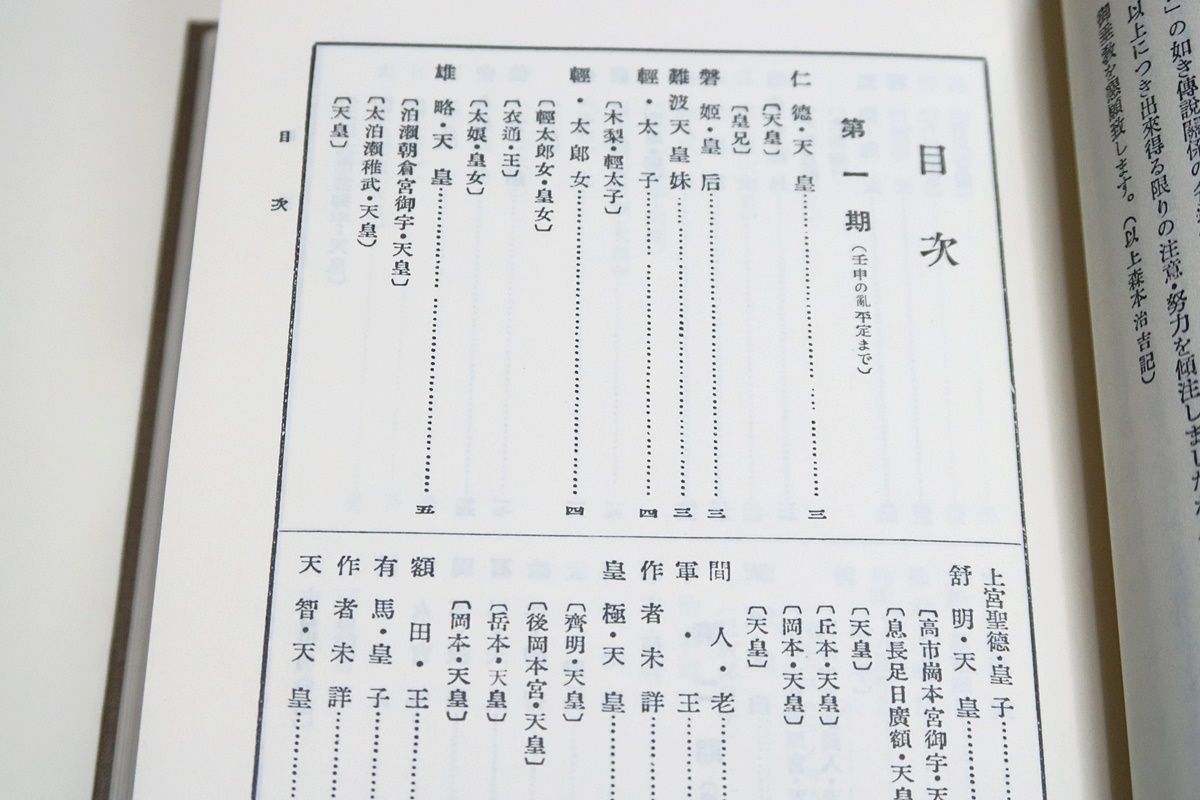 の如き傳說關係の
以上につき出來得る限りの注意・努力を傾注しましたが
御垂敎を懇願致します。（以上森本治吉記）
目次
第一期（壬申の亂平定まで）
仁德・天皇……三
〔天皇〕
〔皇兄〕
磐姬・皇后……三
難波天皇妹……三
輕・太子……四
〔木梨・輕太子〕
輕・太郎女……四
〔輕太郎女・皇女〕
〔衣通・王〕
〔太娘・皇女〕
雄略・天皇……五
〔泊瀨朝倉宮御宇・天皇〕
〔太泊瀨稚武・天皇〕
〔天皇〕
上宮聖德・皇子……
舒明・天皇……
〔高市崗本宮御宇・天
〔息長足日廣額・天皇
〔天皇〕
〔丘本・天皇〕
〔岡本・天皇〕
〔天皇〕
間人・老……
軍・王……
作者未詳……
皇極・天皇
〔齊明・天皇〕
〔後岡本宮・天皇〕
〔岳本・天皇〕
〔岡本・天皇〕
額田・王……
有馬・皇子……
作者未詳……
天智・天皇……
目次